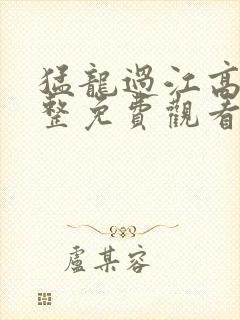 猛龍過江高
整免費觀看
盧某容